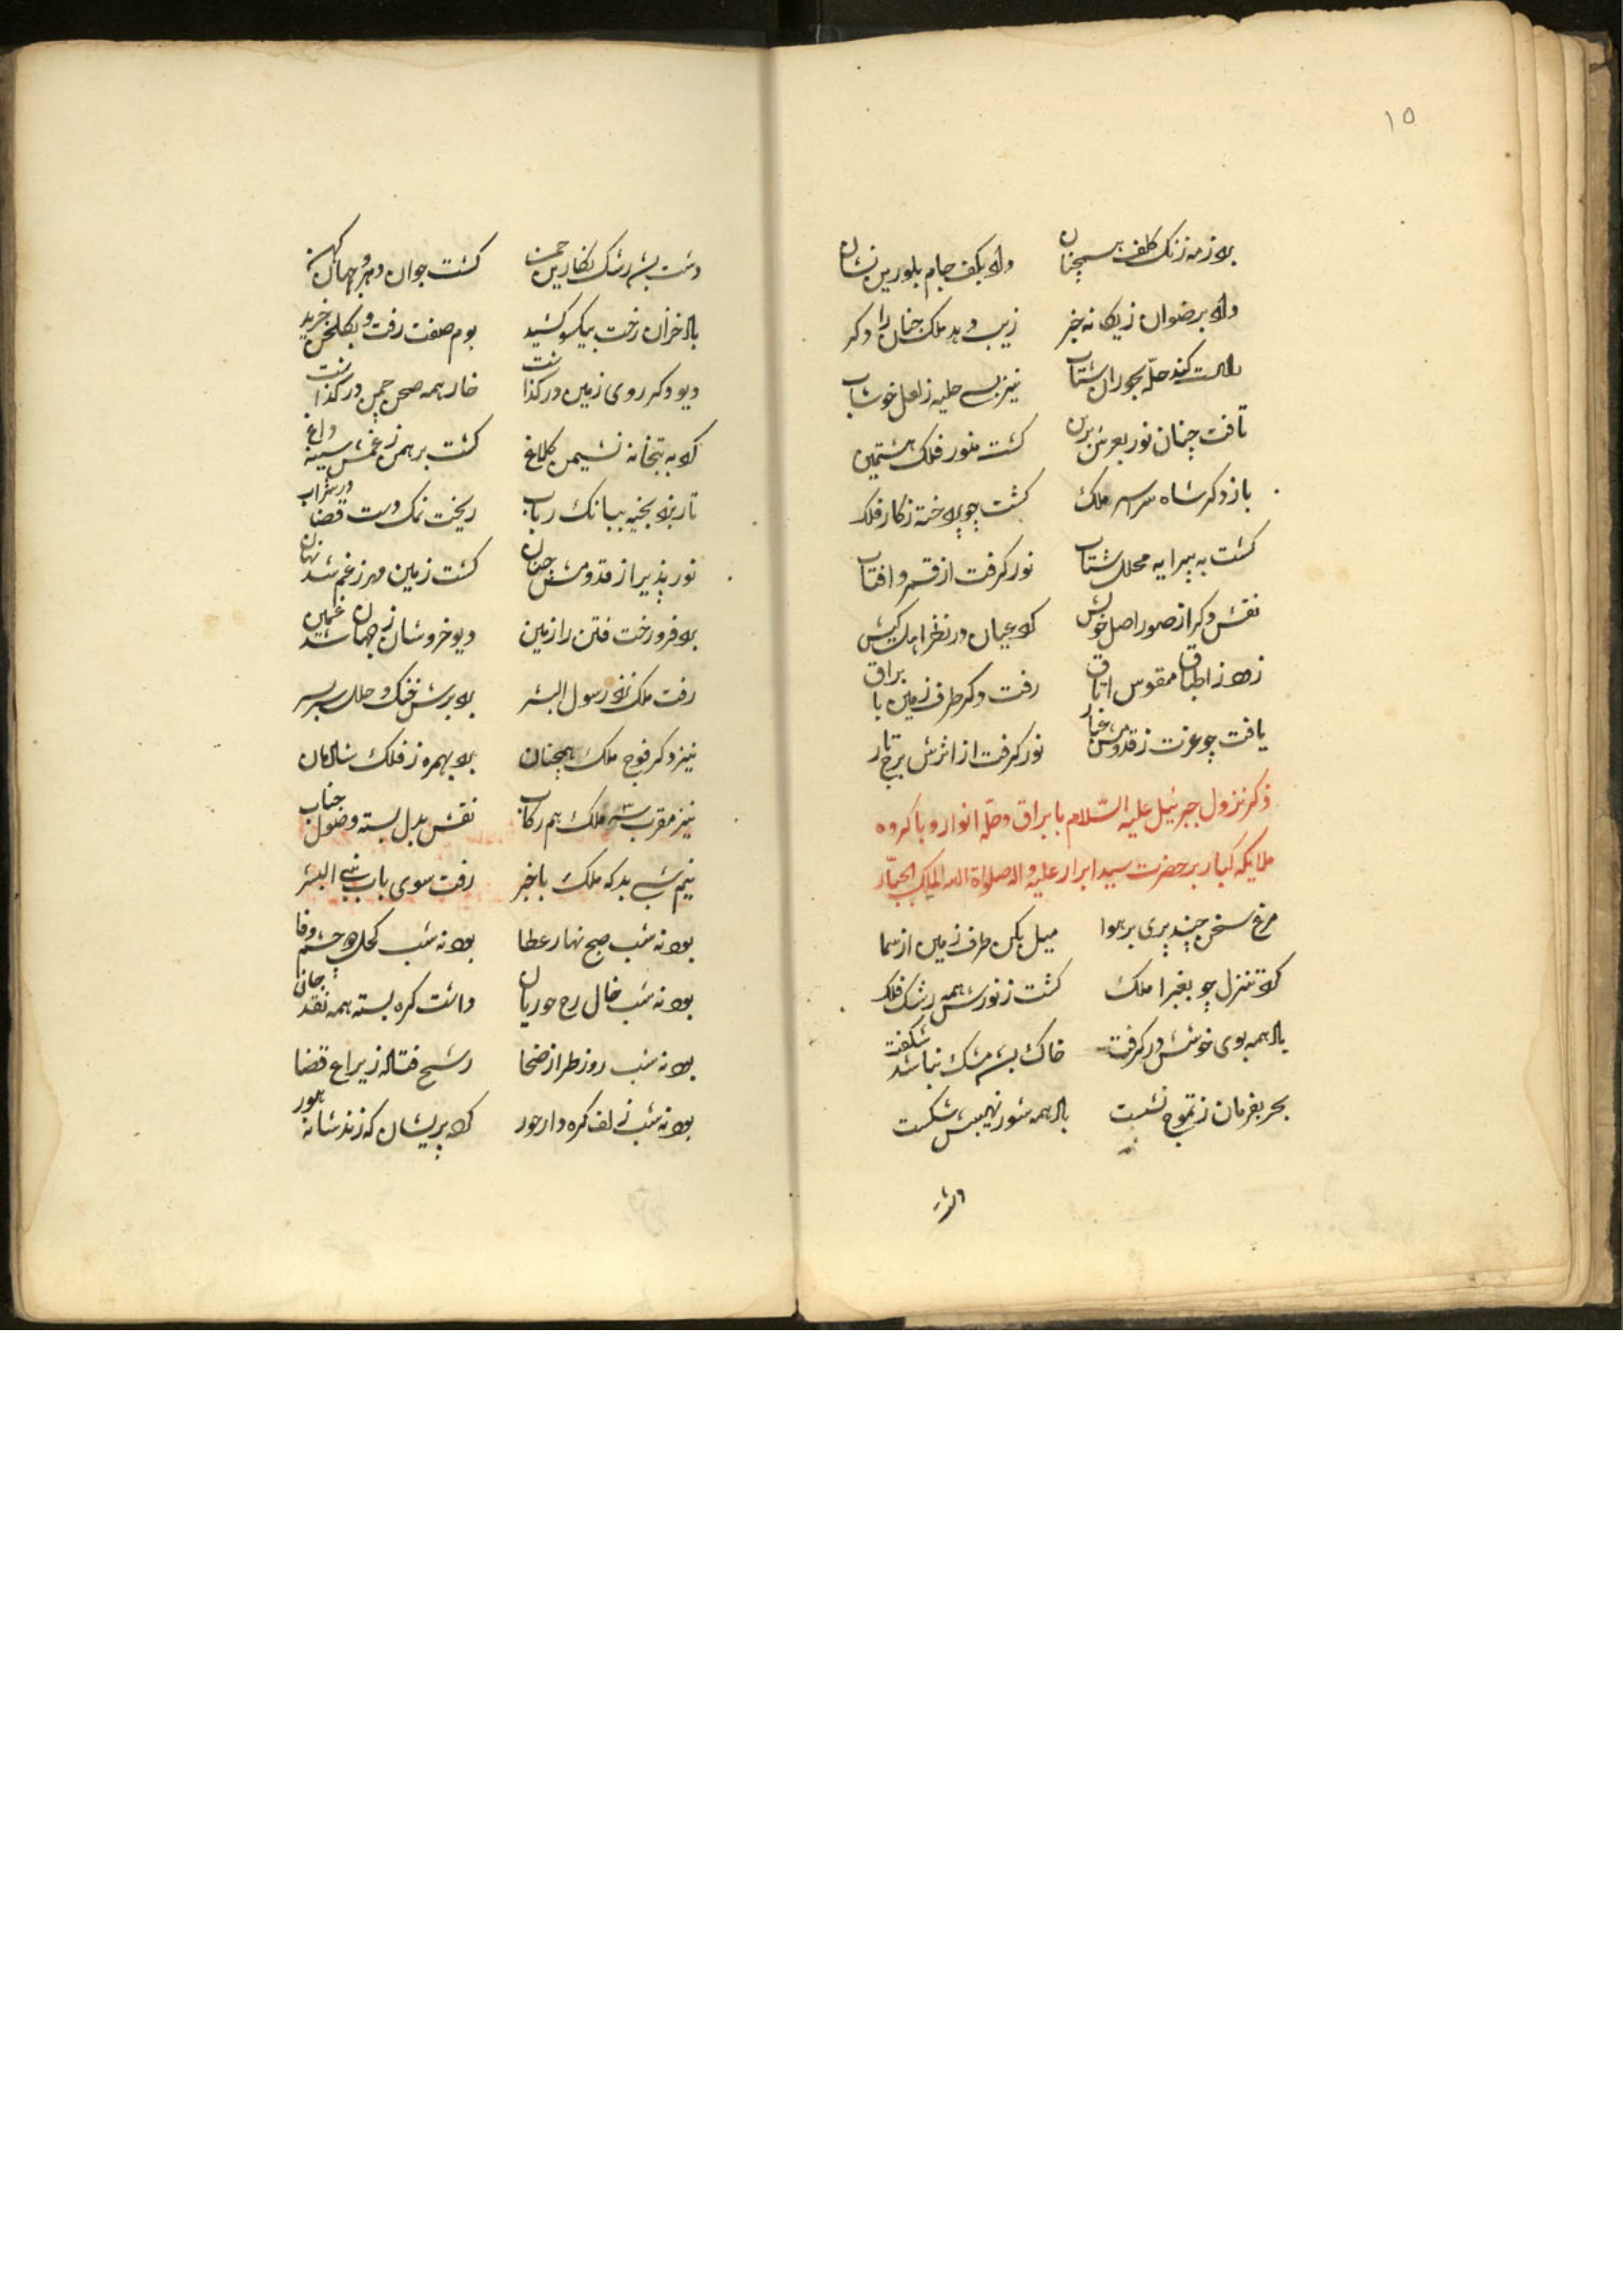 ۱۵
برد ز مه زنک کلف همچنان داد بکف جام بلورین نشان
داد برضوان زیکانه خبر زیب دهد ملک جنان را دکر
راست کند حله بحوران شتاب نیز بسی حلیه ز لعل خوشاب
تافت چنان نور بعرش برین کشت منور فلک هشتمین
باز دکر شاه سریر ملک کشت چو پرداخته ز کار فلک
کشت به پیرایه محلل شتاب نور کرفت از قمر و افتاب
نقش دکر از صور اصل خویش کرد عیان در نظر
زد ز اطباق مقوس اتاق رفت دکر طرف زمین با براق
یافت چو عزت ز قدومش غبار نور کرفت از اثرش برج تار
ذکر نزول جبرئیل علیه السّلام با براق و حلّه انوار و با کروه
ملایکه کبار بر حضرت سید ابرار علیه و اله صلواة الله الملک الجبّار
مرغ سخن چند پری بر هوا میل بکن طرف زمین از سما
کرد تنزل چو بغبرا ملک کشت ز نورش همه رشک فلک
باد همه بوی خوشش در کرفت خاک بسر مشک نباشد شکفت
بحر بفرمان ز تموج نشست باد همه شور نهیبش شکست
دشت
دشت بسر رشک نکارین چمن کشت جوان دهر و جهان کهن
باد خزان رخت بیکسو کشید بوم صفت رفت و بکلخن خزید
دیو دکر روی زمین در کذاشت خار همه صحن چمن در کذاشت
کرد به بتخانه نشیمن کلاغ کشت برهمن ز غمش سینه داغ
تار بزد بخیه ببانک رباب ریخت نمک دست قضا در شراب
نور پذیر از قدومش جنان کشت زمین مهر ز غم شد نهان
برد فرو رخت فتن را زمین دیو خروشان ز جهان شد غمین
رفت ملک نزد رسول البشر برد برش خنک و حلل سربسر
نیز دکر فوج ملک همچنان برد بهمره ز فلک شادمان
نیز مقرب سه ملک هم رکاب نقش بدل بسته وصول جناب
نیم شبی بد که ملک با خبر رفت سوی باب نبی البشر
بود نه شب صبح نهار عطا بود نه شب کحل چشم وفا
بود نه شب خال رخ حوریان داشت کره بسته همه نقد جان
بود نه شب روز طراز ضحا رشح فتاده ز یراع قضا
بود نه شب زلف کره دار حور کرد پریشان که زند شانه هور